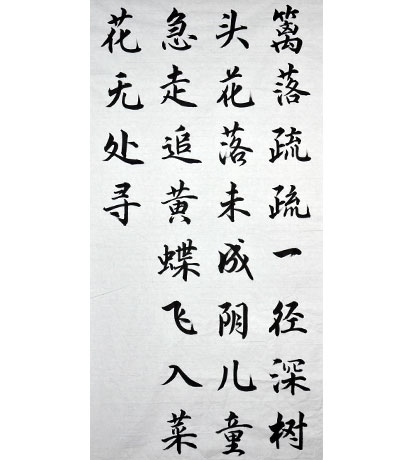 篱落疏疏一径深树
头花落未成阴儿童
急走追黄蝶飞入菜
花无处寻